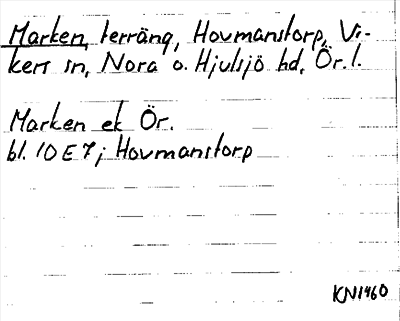 Marken, terräng, Hovmanstorp, Vi-
kers sn, Nora o. Hjulsjö hd, Ör. l.
Marken ek Ör.
bl. 10 E 7; Hovmanstorp
KN1960